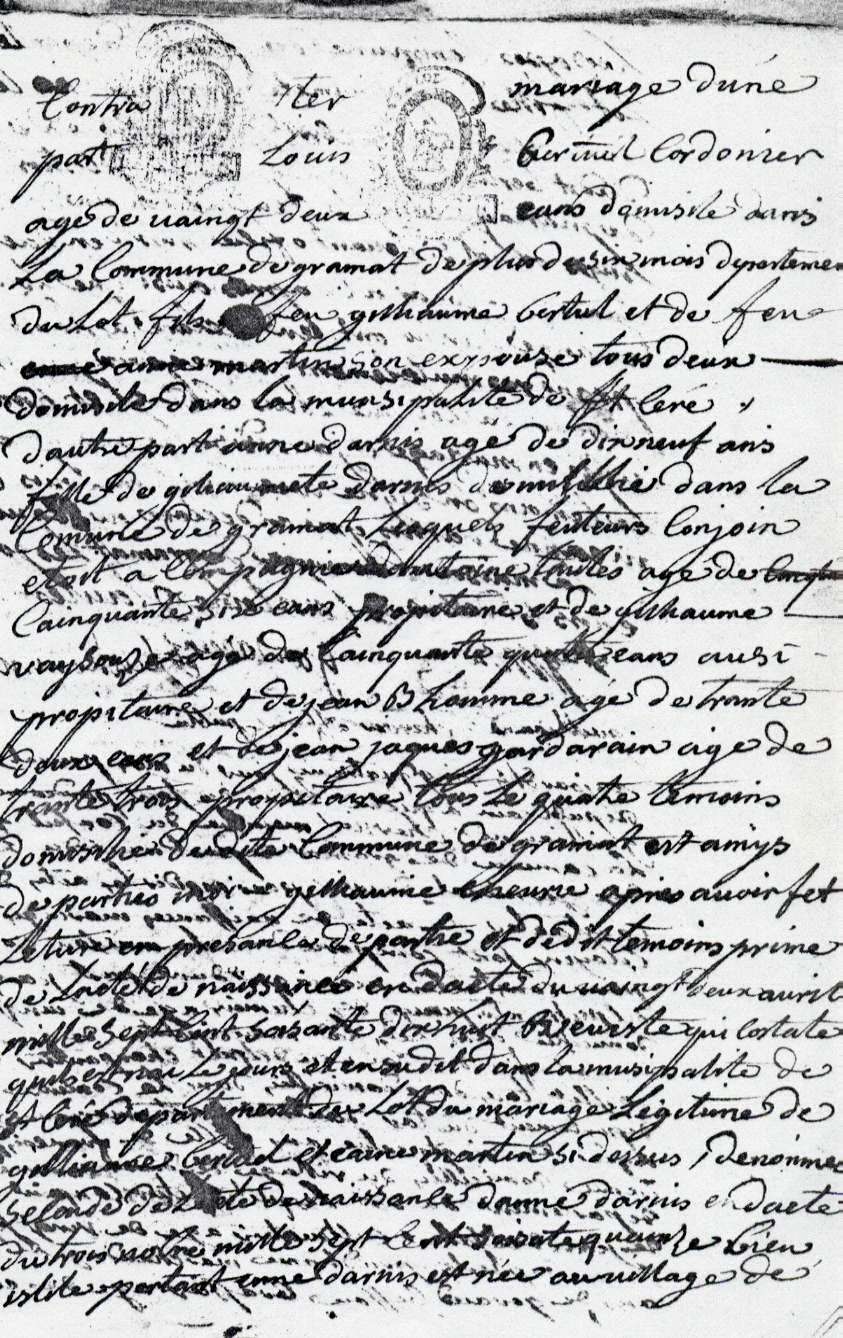 Contra ter mariage dune
part Louis Bertuel Cordonier
age de vaingt deux eans demisile dans
La Commune de gramat de plus de six mois departemen
du Lot fils feu gilhaume bertul et de feu
anne martin son expouse tous deux
domisile dans la munsipalite de st Ceré
dautre part anne darnis age de dix neuf ans
fille de darnis dans la
Comune de gramat Lesquels feuteurs Conjoin
etoit a Compagnie dantoine age de
Cainquante six eans propitaire et de gilhaume
age de Cainquante quatre eans ausi
propitaire et de jean Bhomme age de trante
deux eans et de jean jaques gardarain age de
trante trois propitaire tous Le quatre temoins
domisilie de dite Commune de gramat est amys
de parties moire gilhaume apres avoir fet
Leture en presance de partie et de dit temoins prime
de Lacte de naissance en dacte du vaingt deux avril
mille sept Cent sazante dix huit qui Costate
quil est nai Le jours et en sudit dans la musipalite de
st Cere departement du Lot du mariage Legitime de
gilhaume bertuel et eanne martin si dessus denommes
segonde de Lacte de naissance danne darnis en dacte
du trois mille sept Cent soisate quinze bieu
istile portant anne darnis est née au village de